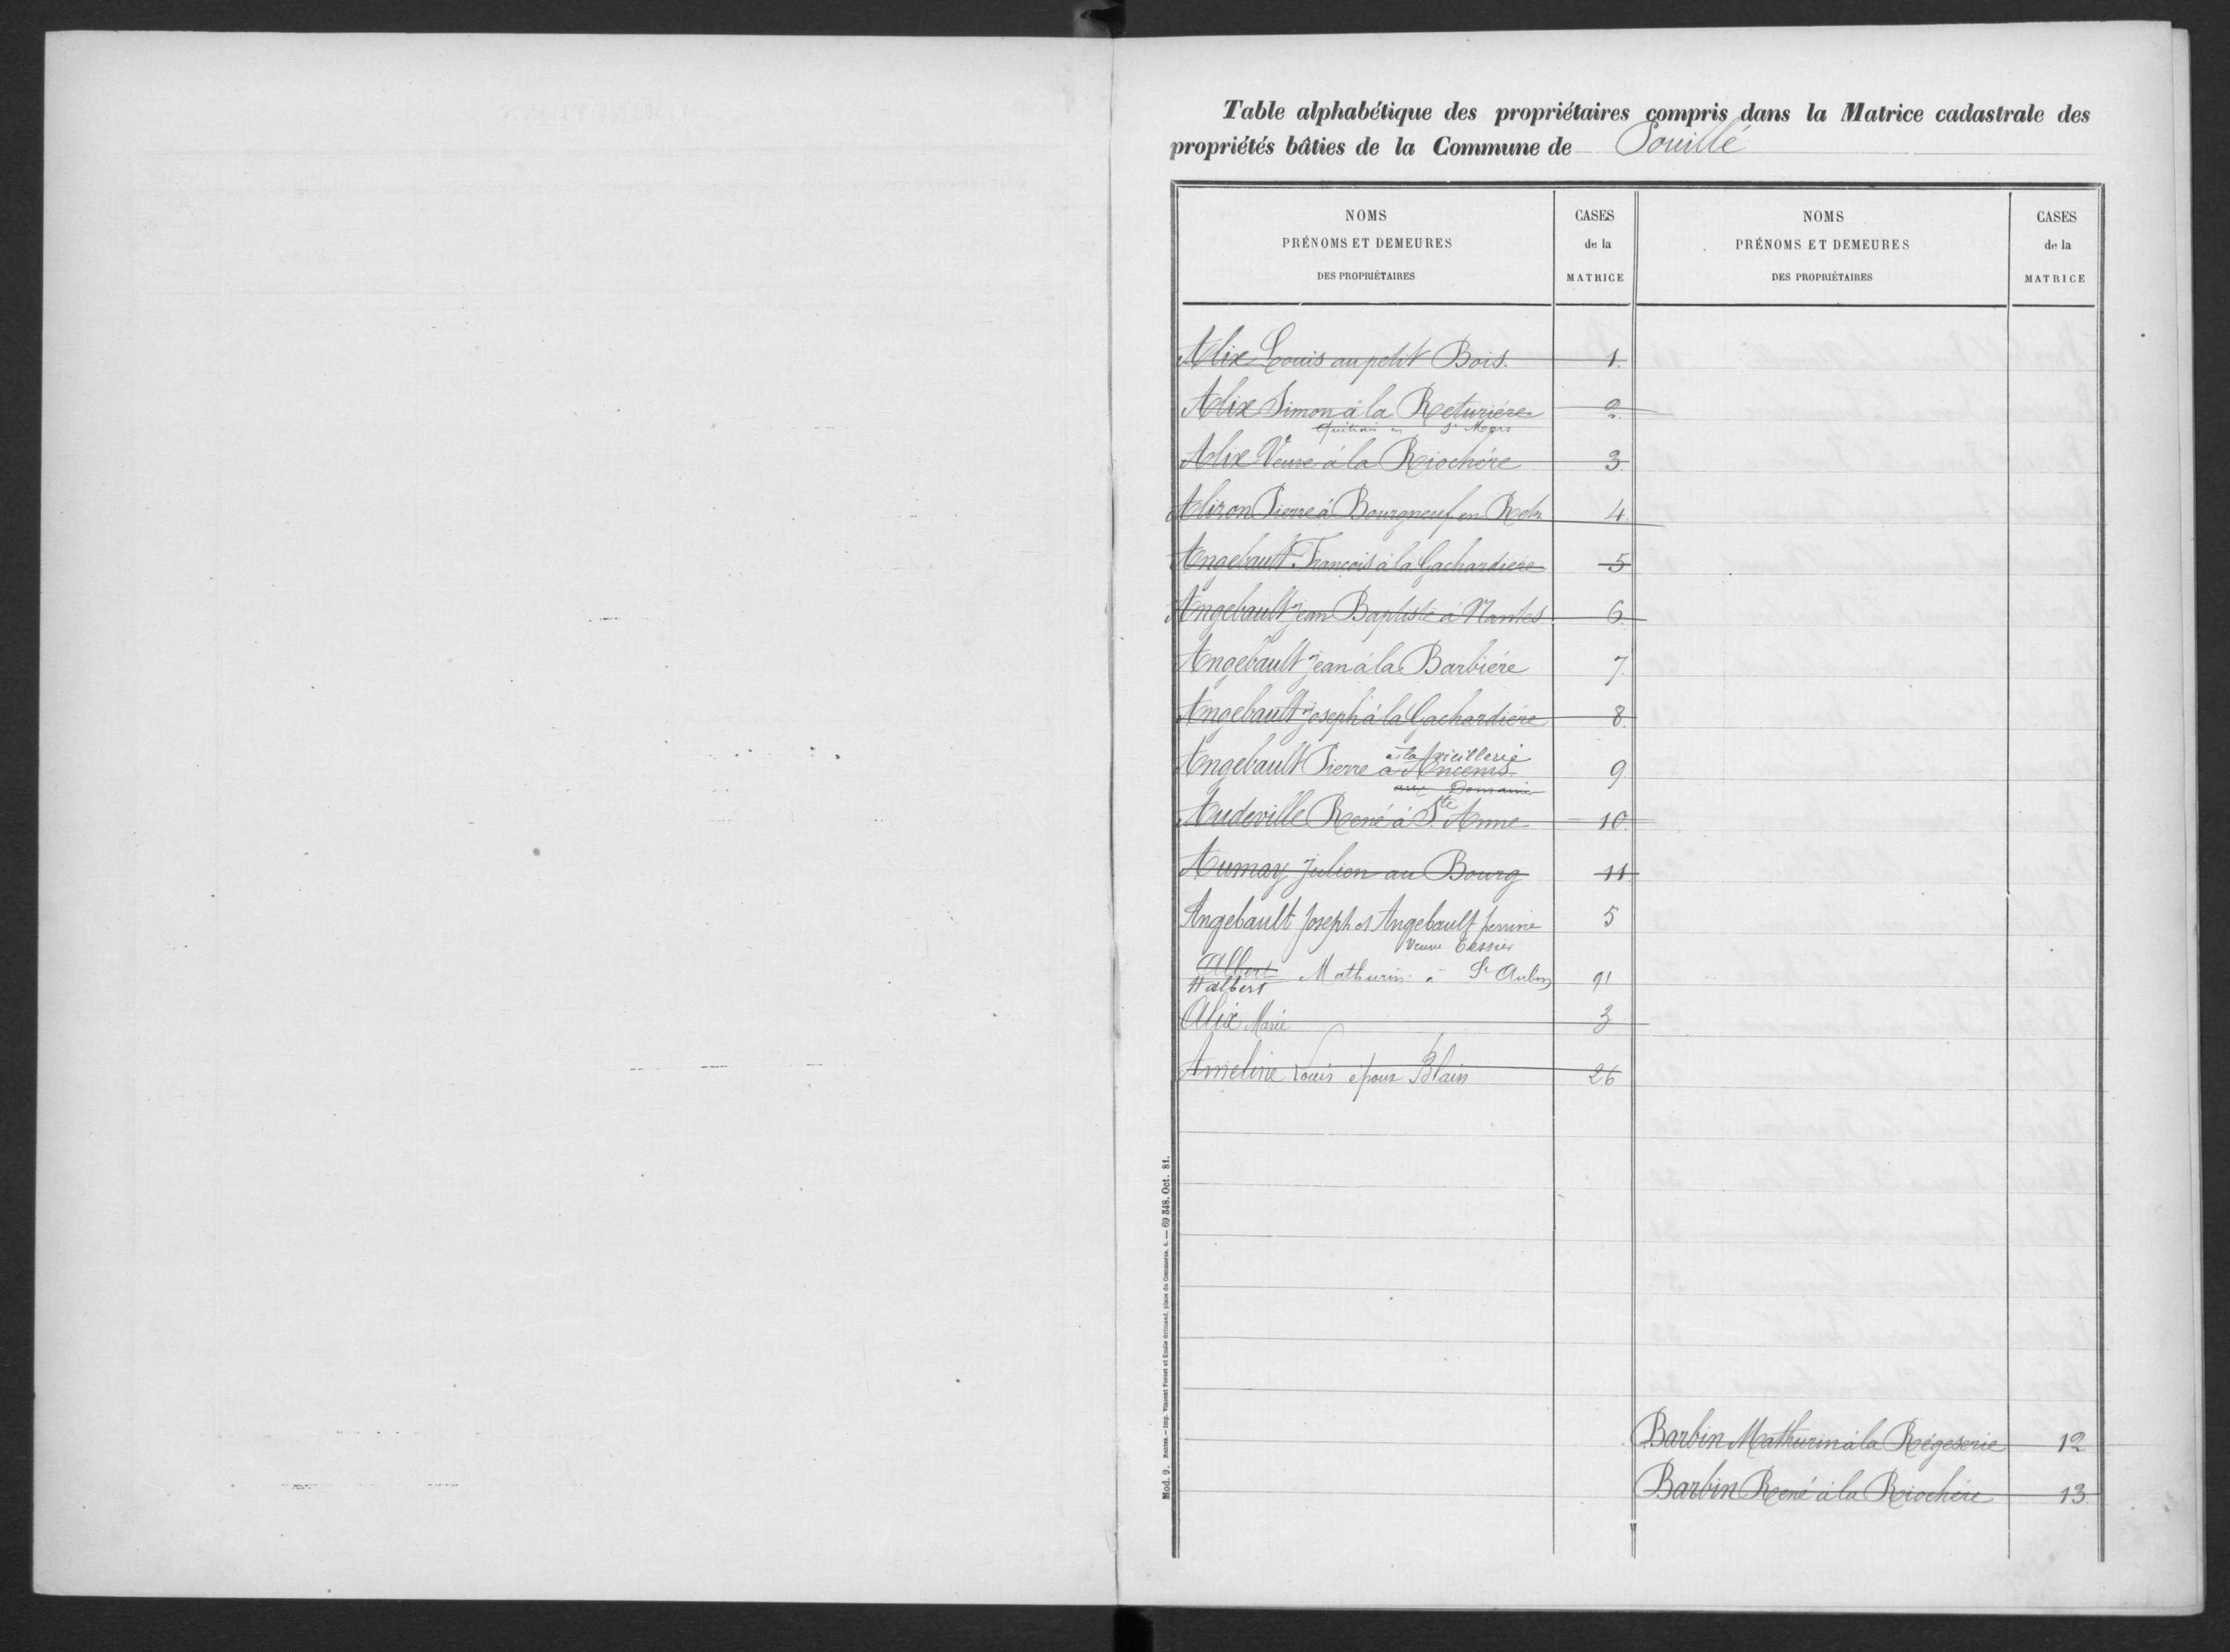 Table alphabétique des propriétaires compris dans la Matrice cadastrale des
propriétés bâties de la Commune de Pouillé
NOMS
PRÉNOMS ET DEMEURES
DES PROPRIÉTAIRES
CASES
de la
MATRICE
NOMS
PRÉNOMS ET DEMEURES
DES PROPRIÉTAIRES
CASES
de la
MATRICE
Alix Louis au petit Bois. 1.
Alix Simon à la Returière 2.
St Mars
Alix Veuve à la Riochère 3.
Aliron Pierre à Bourgneuf en Retz 4.
Angebault François à la Gachardière 5
Angebault Jean Baptiste à Nantes 6.
Angebault Jean à la Barbière 7.
Angebault Joseph à la Gachardière 8.
à la
Angebault Pierre à Ancenis 9
aux Domaine
Audeville René à Ste Anne 10.
Aumay Julien au Bourg 11
Angebault Joseph et Angebault perrine 5
Veuve Tessier
Albert Mathurin à St Aubin 91
Halbert
Alix Marie 3
Ameline Louis époux Blain 26
Barbin Mathurin à la Régeserie 12
Barbin René à la Riochère 13.
Mod. 9. Nantes. — Imp. Vincent Forest et Émile Grimaud, place du Commerce, 4. — 69 348. Oct. 81.